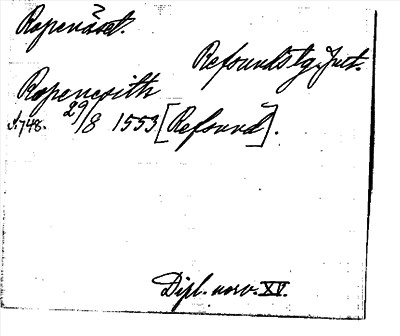 Ropenäset.
Refsunds tg, Jmt.
Ropeneoith
s. 748. 29/8 1553 [Refsund].
Dipl. norv. XV.